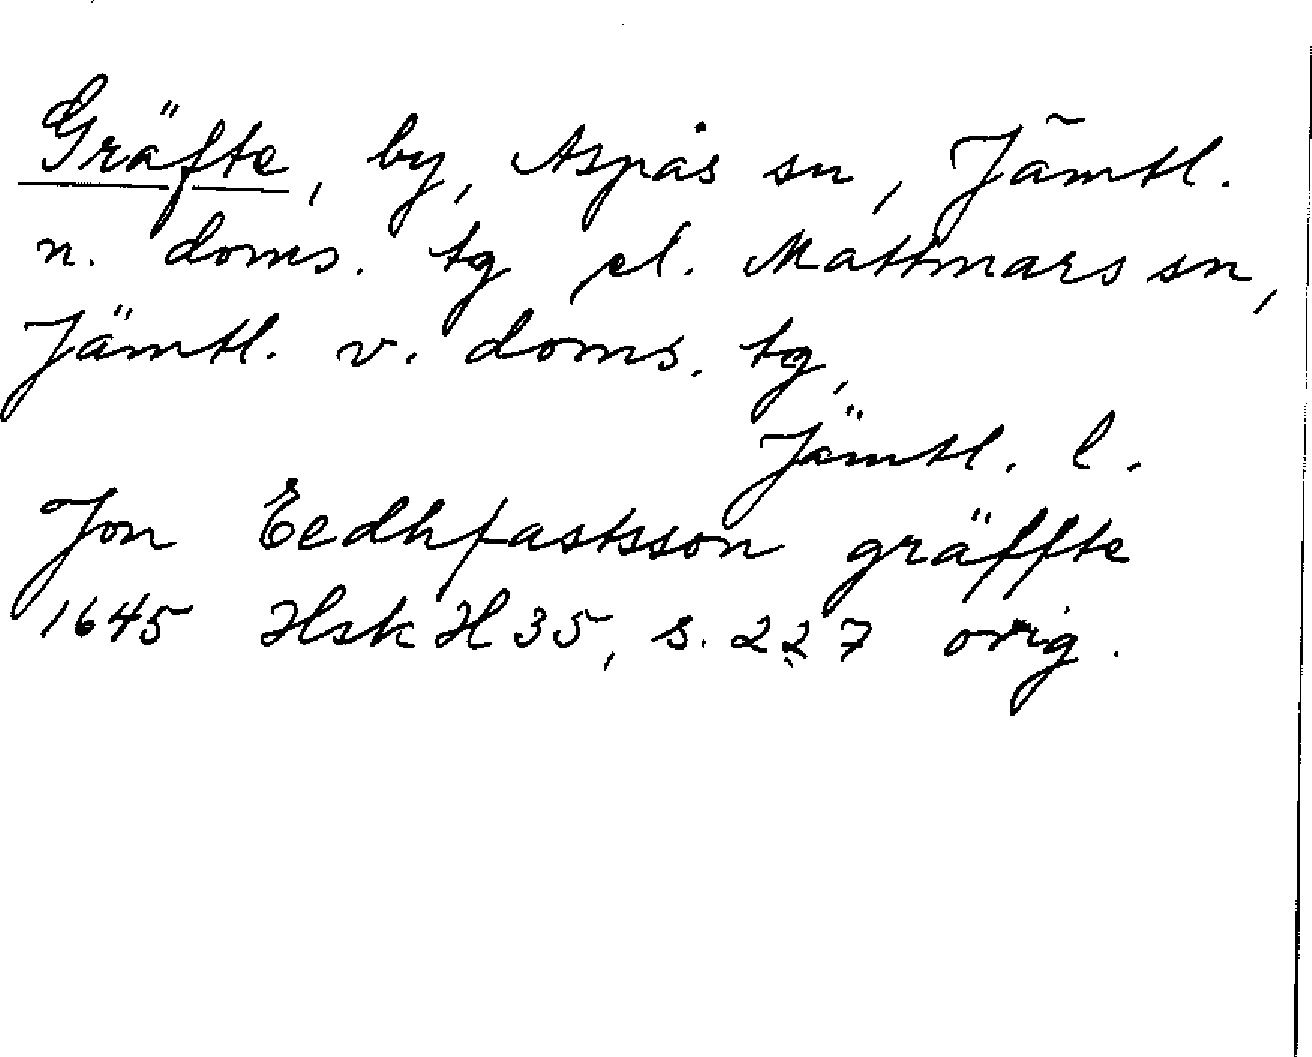 Gräfte, by, Aspås sn, Jämtl.
n. doms. tg el. Mattmars sn,
Jämtl. v. doms. tg,
Jämtl. l.
Jon Eedhfastsson gräffte
1645 Hsk H 35, s. 227 orig.